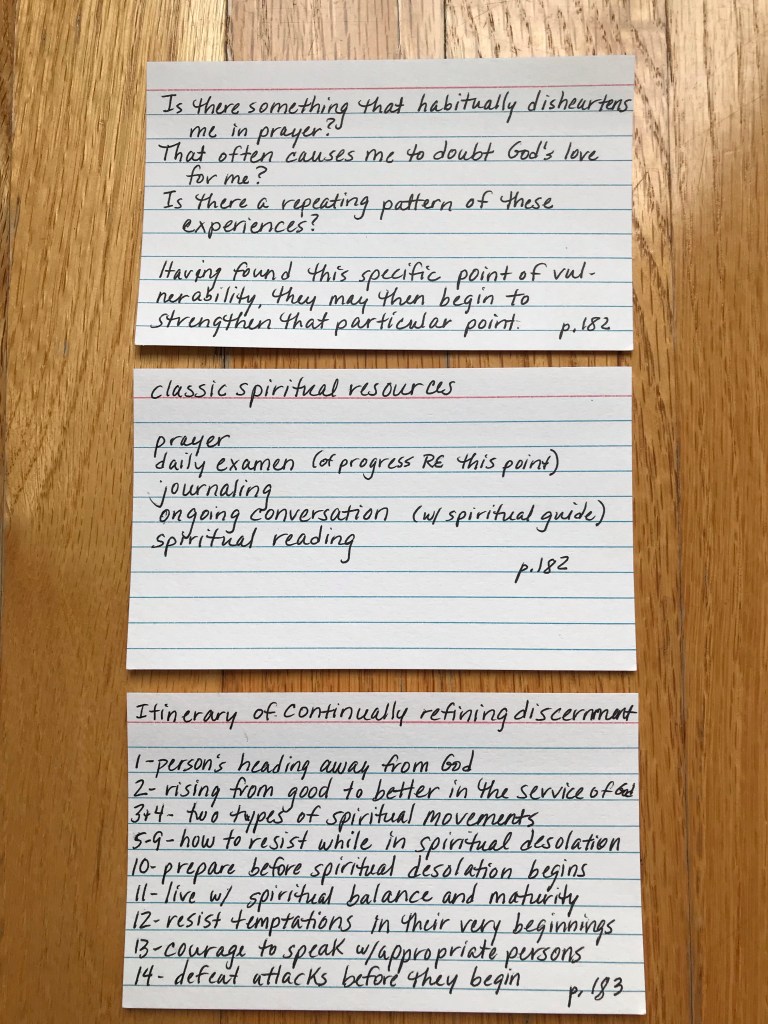 Is there something that habitually disheartens
me in prayer?
That often causes me to doubt God's love
for me?
Is there a repeating pattern of these
experiences?
Having found this specific point of vul-
nerability, they may then begin to
strengthen that particular point. p.182
classic spiritual resources
prayer
daily examen (of progress RE this point)
journaling
ongoing conversation (w/ spiritual guide)
spiritual reading
p.182
Itinerary of continually refining discernment
1-person's heading away from God
2- rising from good to better in the service of God
3+4- two types of spiritual movements
5-9-how to resist while in spiritual desolation
10-prepare before spiritual desolation begins
11-live w/ spiritual balance and maturity
12-resist temptations in their very beginnings
13-courage to speak w/appropriate persons
14- defeat attacks before they begin p. 183